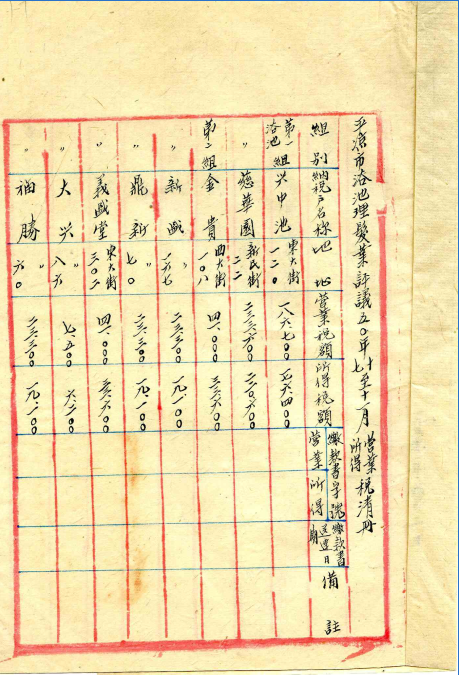 市浴池理髮業評議五〇年至十一月營業所得稅清冊
組別 納稅戶名稱 地址 營業稅額 所得稅額 繳款書字號 營業 所得 繳款書送達日期 備註
第一組浴池 兴中池 東大街一二〇 一八六七〇〇 一七六四〇〇
〃 慈華園 新民街二二 二三三六〇〇 二二〇六〇〇
第二組 金貴 西大街一〇八 四一〇〇〇 三三六〇〇
〃 新盛 〃一六七 二三三〇〇 一九一〇〇
〃 鼎新 〃七〇 二三三〇〇 一九一〇〇
〃 義盛堂 東大街三〇二 四一〇〇〇 三三六〇〇
〃 大兴 〃八六 七五〇〇
〃 福勝 〃六〇 二三三〇〇 一九一〇〇